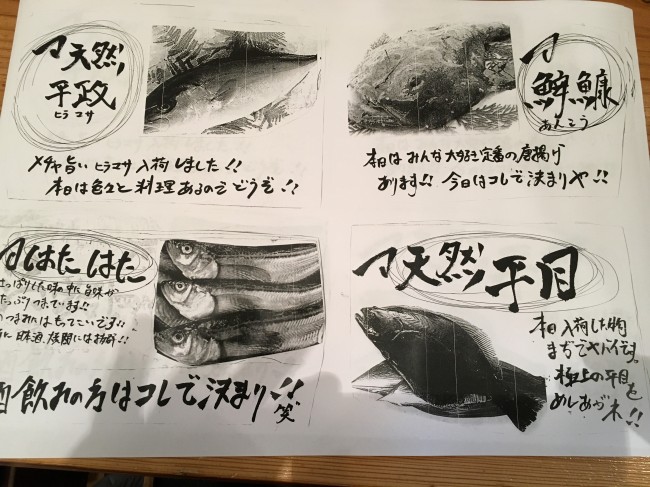 天然
平政
ヒラマサ
メチャ旨い ヒラマサ 入荷しました!!
本日は色々と料理あるのでどうぞ!!
鮟鱇
あんこう
本日はみんな大好き定番の唐揚げ
あります!! 今日はコレで決まりや!!
はたはた
さっぱりした味の中に旨味が
たっぷりつまています!!
おつまみにはもってこいです!!
特に日本酒
飲みの方はコレで決まり!!
笑
天然平目
本日入荷した
まぢでヤバイです
極上の平目を
めしあがれ!!